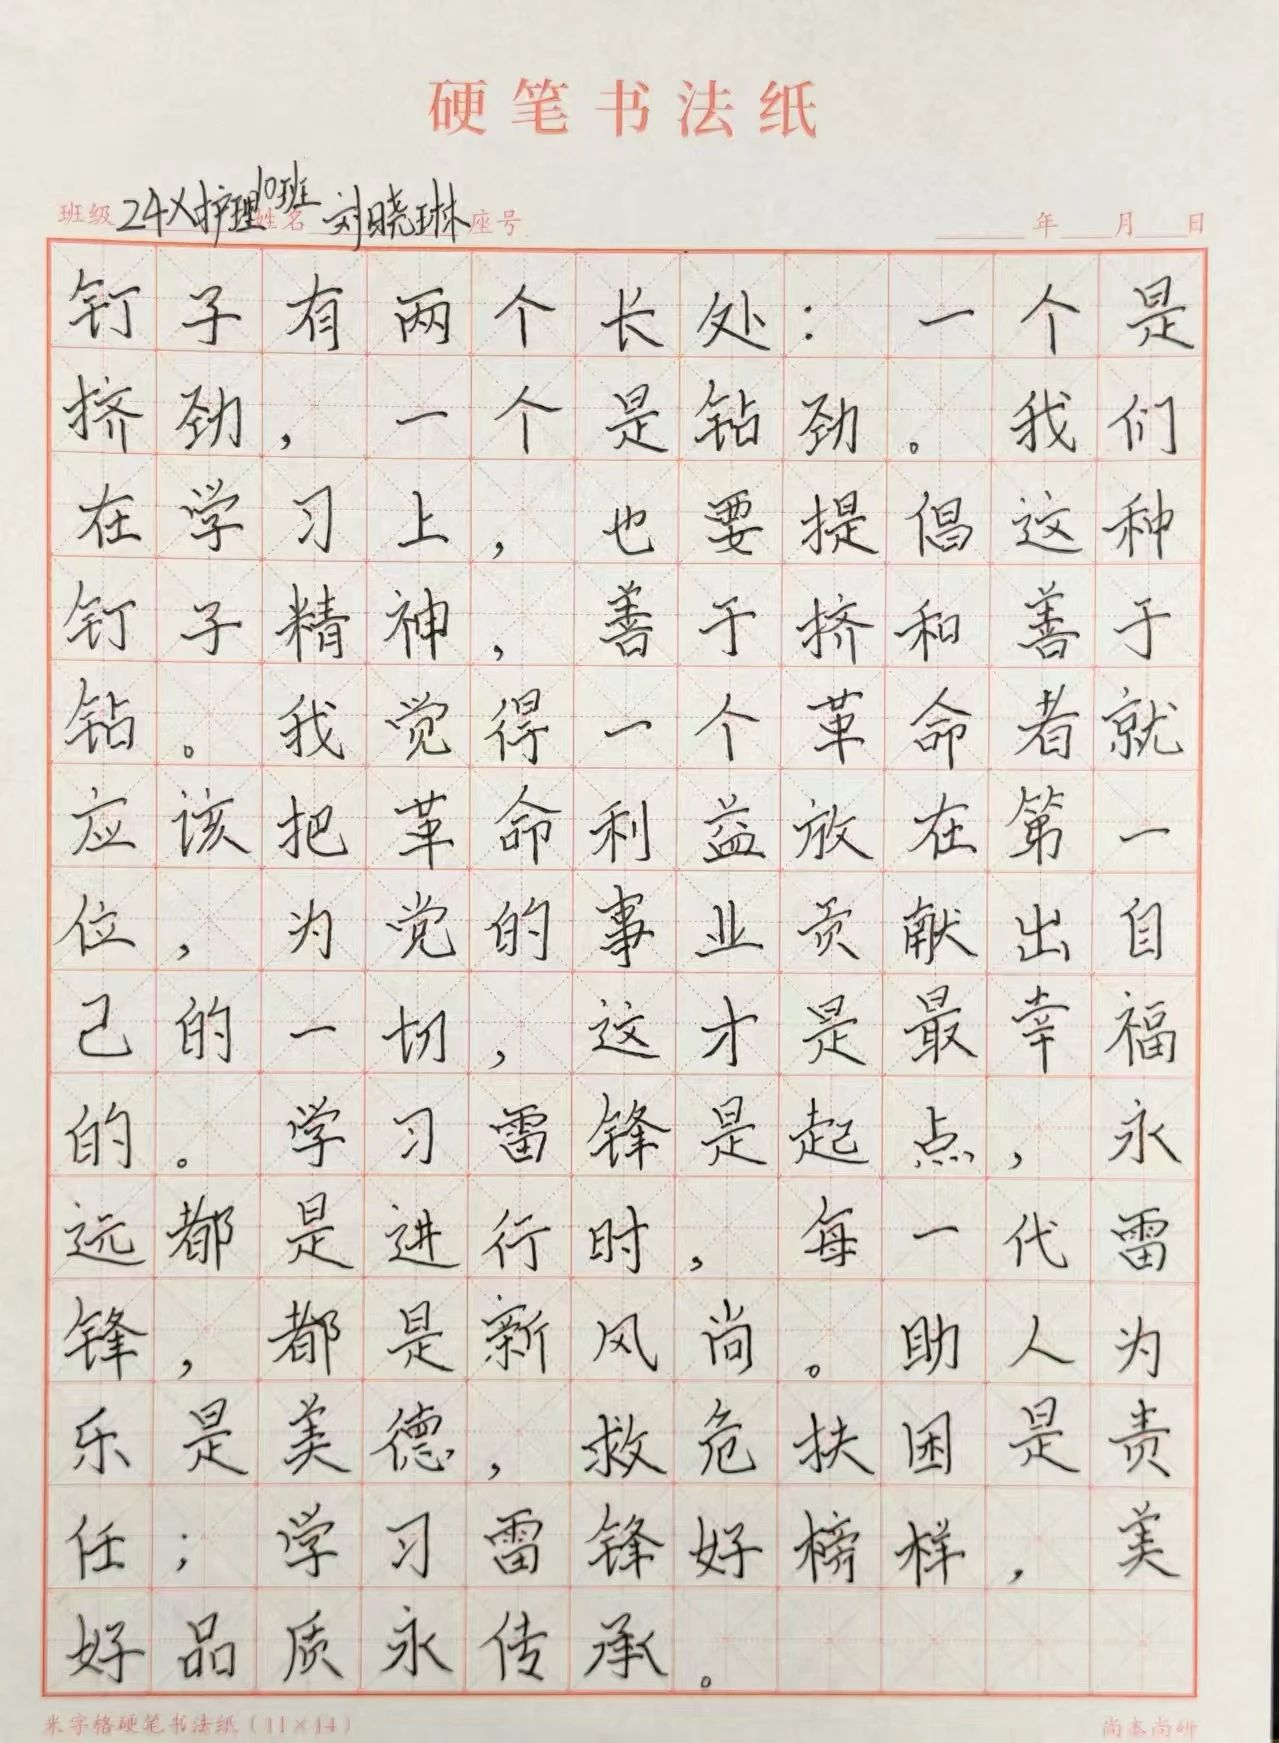 硬笔书法纸
班级 24X护理10班 姓名 刘晓琳 座号 年 月 日
钉子有两个长处：一个是
挤劲，一个是钻劲。我们
在学习上，也要提倡这种
钉子精神，善于挤和善于
钻。我觉得一个革命者就
应该把革命利益放在第一
位，为党的事业贡献出自
己的一切，这才是最幸福
的。学习雷锋是起点，永
远都是进行时，每一代雷
锋，都是新风尚。助人为
乐是美德，救危扶困是责
任；学习雷锋好榜样，美
好品质永传承。
米字格硬笔书法纸（11×14）